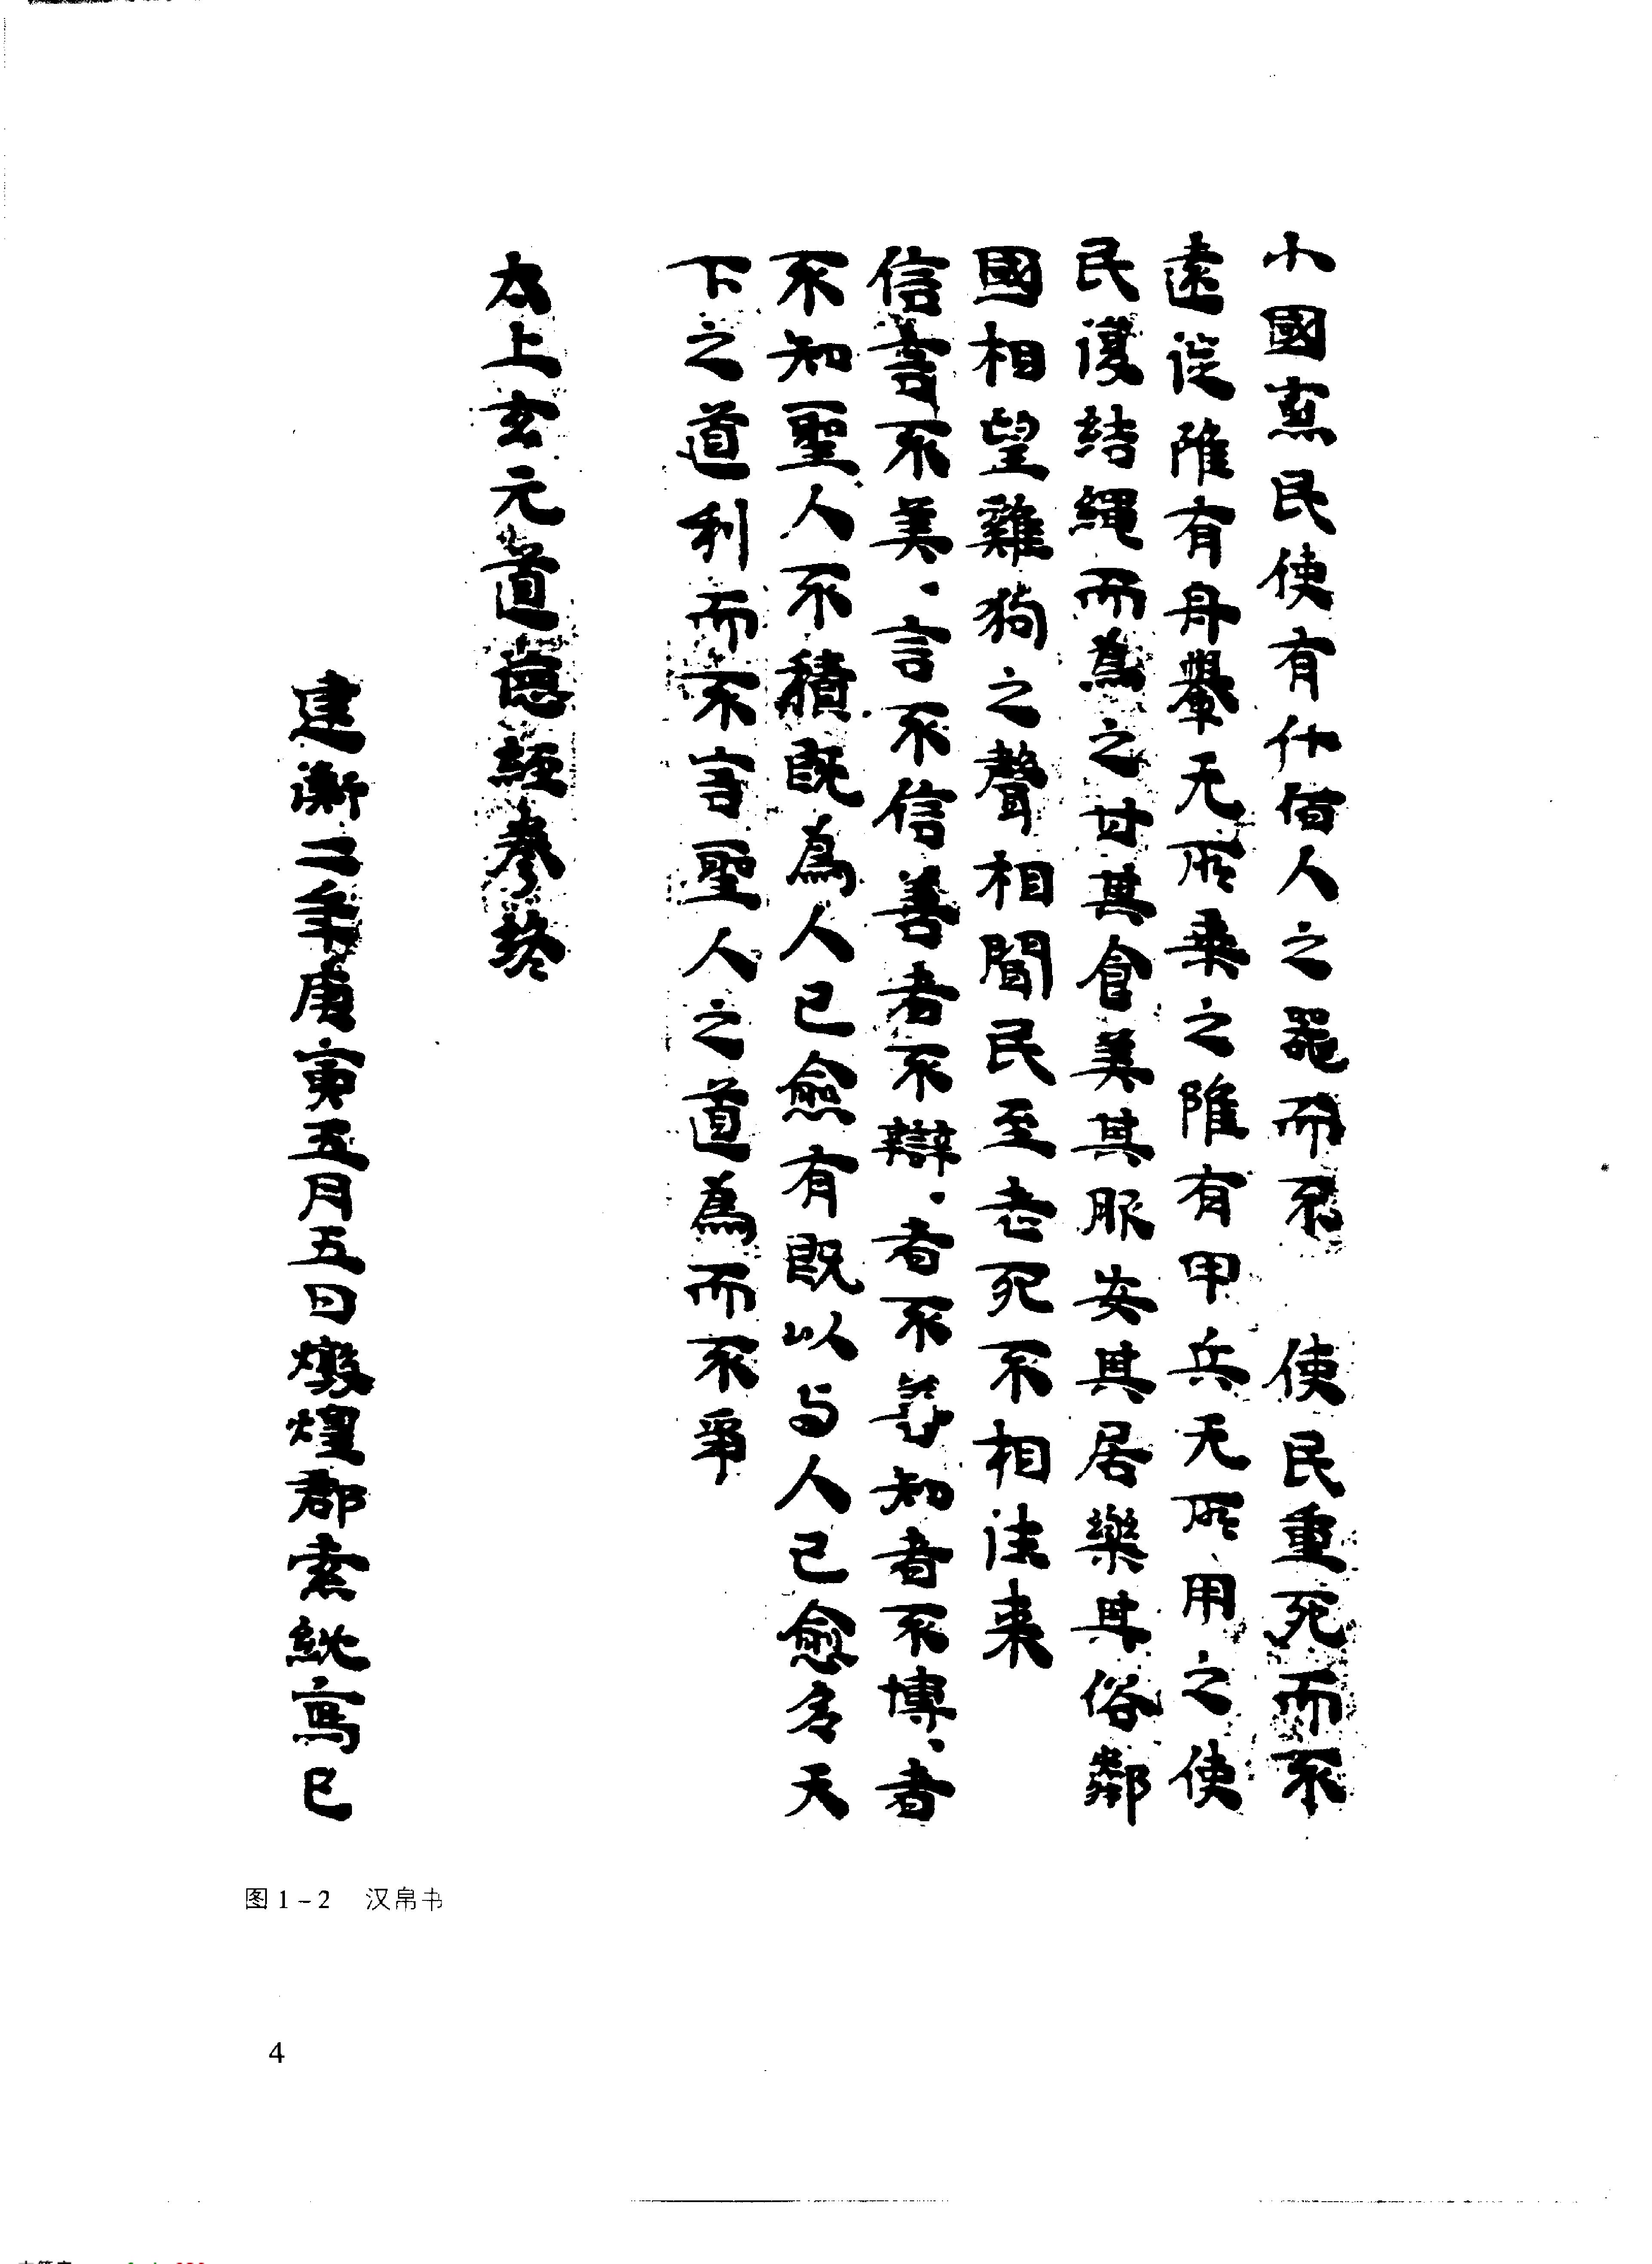 小國寡民使有什佰人之器而不 使民重死而不
遠徙雖有舟轝无所乘之雖有甲兵无所用之使
民復結繩而為之甘其食美其服安其居樂其俗鄰
國相望雞狗之聲相聞民至老死不相往來
信言不美、言不信善者不辯、者不善知者不博、者
不知聖人不積既為人己愈有既以与人己愈多天
下之道利而不害聖人之道為而不爭
太上玄元道德經卷終
建衡二年庚寅五月五日燉煌郡索紞寫已
图1-2 汉帛书
4